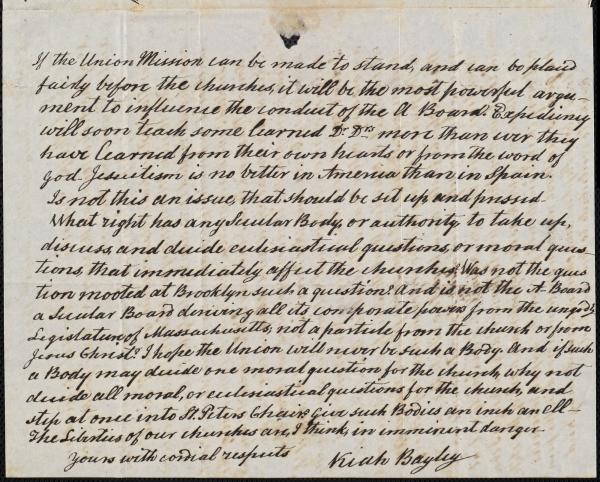 If the Union Mission can be made to stand, and can be placed
fairly before the churches, it will be the most powerful argu-
ment to influence the conduct of the A Board. Expediency
will soon teach some learned Dr. Drs more than ever they
have learned from their own hearts or from the word of
God. Jesuitism is no better in America than in Spain.
Is not this an issue, that should be set up and pressed.
What right has any Secular Body, or authority, to take up,
discuss, and decide eclesiastical questions, or moral ques-
tions, that immediately affect the churches? Was not the ques
tion mooted at Brooklyn such a question? And is not the A. Board
a Secular Board deriving all its corporate powers from the ungodly
Legislature of Massachusetts, not a particle from the church or from
Jesus Christ? I hope the Union will never be such a Body. And if such
a Body may decide one moral question for the church, why not
decide all moral, or eclesiastical questions for the church, and
step at once into St. Peters Chair? Give such Bodies an inch an ell—
The Liberties of our churches are, I think, in imminent danger.
Yours with cordial respects
Kiah Bayley